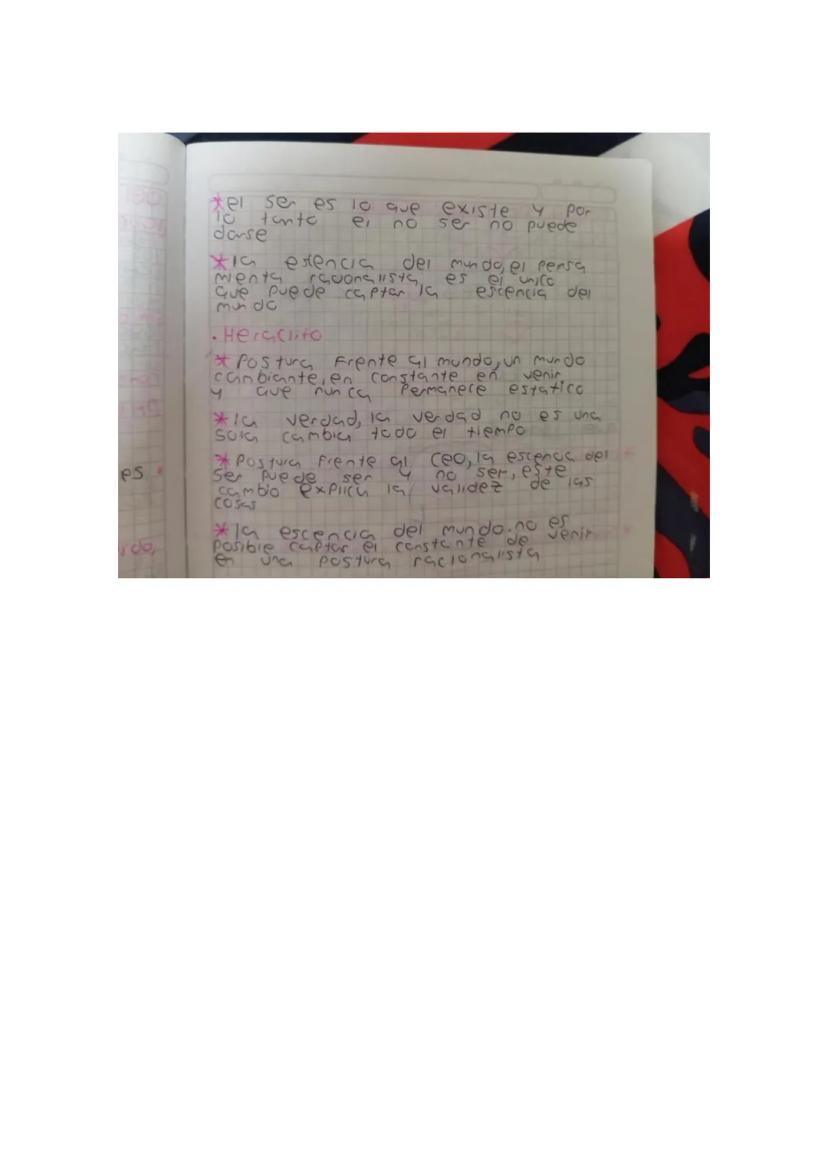 *el ser es lo que existe y por
lo tanto el no ser no puede
darse
*la esencia del mundo, el pensa
mienta racionalista es el unico
que puede captar la escencia del
mundo
. Heraclito
* Postura Frente al mundo, un mundo
cambiante, en constante en venir
y que nunca permanece estatico
*la verdad, la verdad no es una
sola cambia todo el tiempo
*Postura Frente al ceo, la escencia del
ser puede ser y no ser, este
cambio explica la validez de las
cosas
*la escencia del mundo. no es
posible captar el constante de venir
en una postura racionalista
es